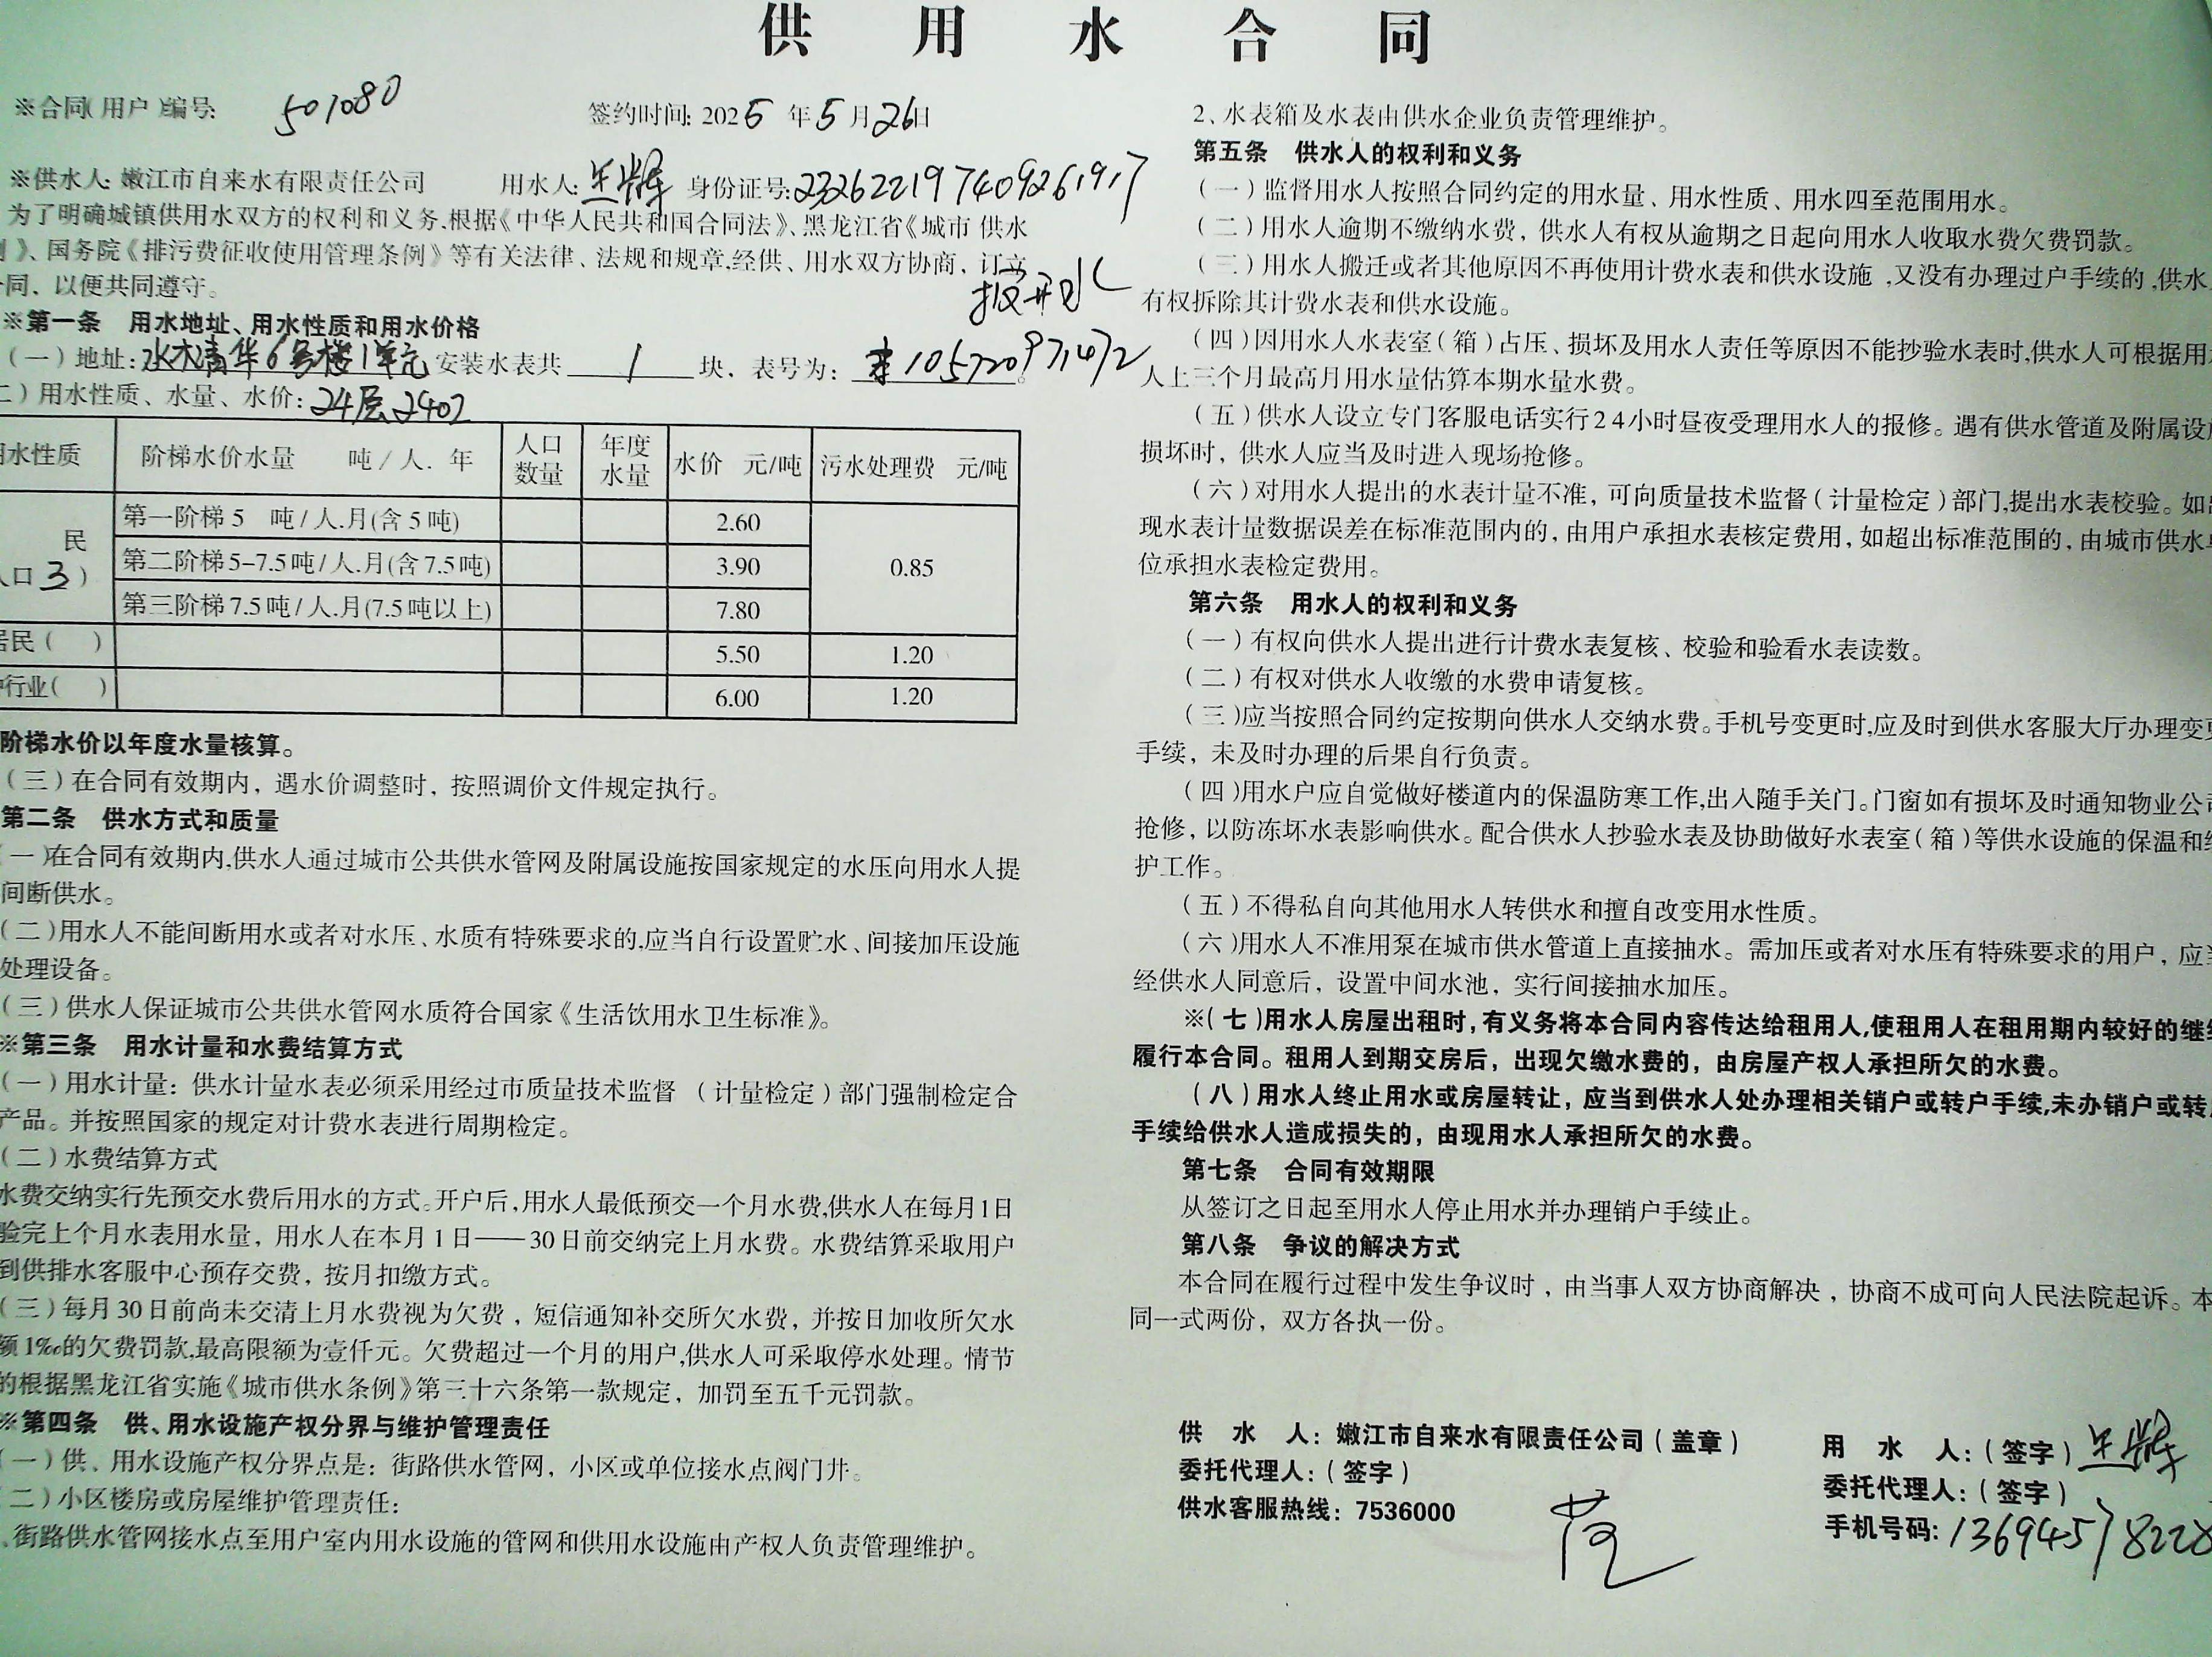 供用水合同
※合同(用户)编号: 501080 签约时间: 2025年5月26日
※供水人: 嫩江市自来水有限责任公司 用水人: 王辉 身份证号: 232622197409261917
为了明确城镇供用水双方的权利和义务,根据《中华人民共和国合同法》、黑龙江省《城市 供水
》、国务院《排污费征收使用管理条例》等有关法律、法规和规章,经供、用水双方协商,订立
同,以便共同遵守。
※第一条 用水地址、用水性质和用水价格
(一)地址: 水木清华6号楼1单元 安装水表共 1 块,表号为: 105720971472
二)用水性质、水量、水价: 24层2402
水性质 阶梯水价水量 吨/人.年 人口数量 年度水量 水价 元/吨 污水处理费 元/吨
民
口3)
第一阶梯5 吨/人.月(含5吨) 2.60
第二阶梯5-7.5吨/人.月(含7.5吨) 3.90 0.85
第三阶梯7.5吨/人.月(7.5吨以上) 7.80
居民( ) 5.50 1.20
行业( ) 6.00 1.20
阶梯水价以年度水量核算。
(三)在合同有效期内,遇水价调整时,按照调价文件规定执行。
第二条 供水方式和质量
(一)在合同有效期内,供水人通过城市公共供水管网及附属设施按国家规定的水压向用水人提
间断供水。
(二)用水人不能间断用水或者对水压、水质有特殊要求的,应当自行设置贮水、间接加压设施
处理设备。
(三)供水人保证城市公共供水管网水质符合国家《生活饮用水卫生标准》。
※第三条 用水计量和水费结算方式
(一)用水计量: 供水计量水表必须采用经过市质量技术监督 (计量检定)部门强制检定合
产品。并按照国家的规定对计费水表进行周期检定。
(二)水费结算方式
水费交纳实行先预交水费后用水的方式。开户后,用水人最低预交一个月水费,供水人在每月1日
验完上个月水表用水量,用水人在本月1日——30日前交纳完上月水费。水费结算采取用户
到供排水客服中心预存交费,按月扣缴方式。
(三)每月30日前尚未交清上月水费视为欠费,短信通知补交所欠水费,并按日加收所欠水
额1‰的欠费罚款,最高限额为壹仟元。欠费超过一个月的用户,供水人可采取停水处理。情节
的根据黑龙江省实施《城市供水条例》第三十六条第一款规定,加罚至五千元罚款。
※第四条 供、用水设施产权分界与维护管理责任
(一)供、用水设施产权分界点是: 街路供水管网,小区或单位接水点阀门井。
(二)小区楼房或房屋维护管理责任:
、街路供水管网接水点至用户室内用水设施的管网和供用水设施由产权人负责管理维护。
2、水表箱及水表由供水企业负责管理维护。
第五条 供水人的权利和义务
(一)监督用水人按照合同约定的用水量、用水性质、用水四至范围用水。
(二)用水人逾期不缴纳水费,供水人有权从逾期之日起向用水人收取水费欠费罚款。
(三)用水人搬迁或者其他原因不再使用计费水表和供水设施,又没有办理过户手续的,供水
有权拆除其计费水表和供水设施。
(四)因用水人水表室(箱)占压、损坏及用水人责任等原因不能抄验水表时,供水人可根据用
人上三个月最高月用水量估算本期水量水费。
(五)供水人设立专门客服电话实行24小时昼夜受理用水人的报修。遇有供水管道及附属设
损坏时,供水人应当及时进入现场抢修。
(六)对用水人提出的水表计量不准,可向质量技术监督(计量检定)部门,提出水表校验。如
现水表计量数据误差在标准范围内的,由用户承担水表核定费用,如超出标准范围的,由城市供水
位承担水表检定费用。
第六条 用水人的权利和义务
(一)有权向供水人提出进行计费水表复核、校验和验看水表读数。
(二)有权对供水人收缴的水费申请复核。
(三)应当按照合同约定按期向供水人交纳水费。手机号变更时,应及时到供水客服大厅办理变更
手续,未及时办理的后果自行负责。
(四)用水户应自觉做好楼道内的保温防寒工作,出入随手关门。门窗如有损坏及时通知物业公司
抢修,以防冻坏水表影响供水。配合供水人抄验水表及协助做好水表室(箱)等供水设施的保温和
护工作。
(五)不得私自向其他用水人转供水和擅自改变用水性质。
(六)用水人不准用泵在城市供水管道上直接抽水。需加压或者对水压有特殊要求的用户,应
经供水人同意后,设置中间水池,实行间接抽水加压。
※(七)用水人房屋出租时,有义务将本合同内容传达给租用人,使租用人在租用期内较好的继续
履行本合同。租用人到期交房后,出现欠缴水费的,由房屋产权人承担所欠的水费。
(八)用水人终止用水或房屋转让,应当到供水人处办理相关销户或转户手续,未办销户或转
手续给供水人造成损失的,由现用水人承担所欠的水费。
第七条 合同有效期限
从签订之日起至用水人停止用水并办理销户手续止。
第八条 争议的解决方式
本合同在履行过程中发生争议时,由当事人双方协商解决,协商不成可向人民法院起诉。本
同一式两份,双方各执一份。
供 水 人: 嫩江市自来水有限责任公司(盖章) 用 水 人:(签字) 王辉
委托代理人:(签字) 委托代理人:(签字)
供水客服热线: 7536000 手机号码: 13694578228